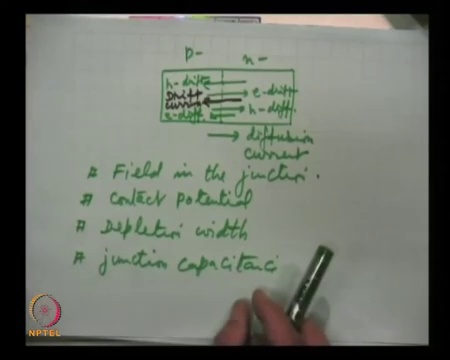 p- n-
h-drift
Drift e-drift
current h-diff.
e-diff
diffusion
current
# Field in the junction.
# Contact potential
# Depletion width
# junction capacitanc
NPTEL